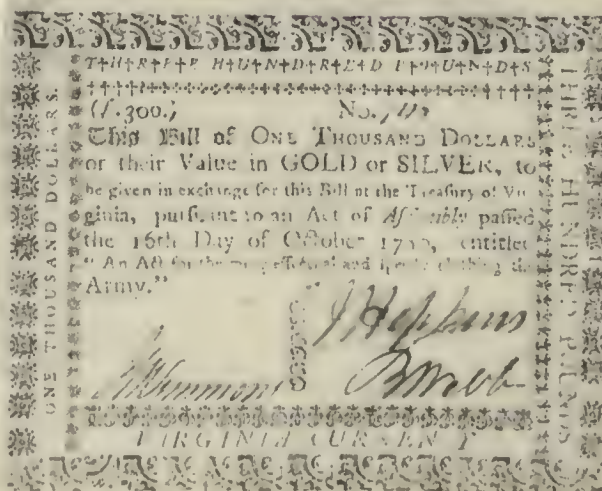 T+H+R+E+E H+U+N+D+R+E+D P+O+U+N+D+S
(£.300.) No.
This Bill of ONE THOUSAND DOLLARS
or their Value in GOLD or SILVER, to
be given in exchange for this Bill at the Treasury of Vir
ginia, pursuant to an Act of Assembly passed
the 16th Day of October entitled
" An Act for the more effectual and speedy clothing the
Army."
J Hopkins
Simmons B Webb
VIRGINIA CURRENCY
ONE THOUSAND DOLLARS.
THREE HUNDRED POUNDS